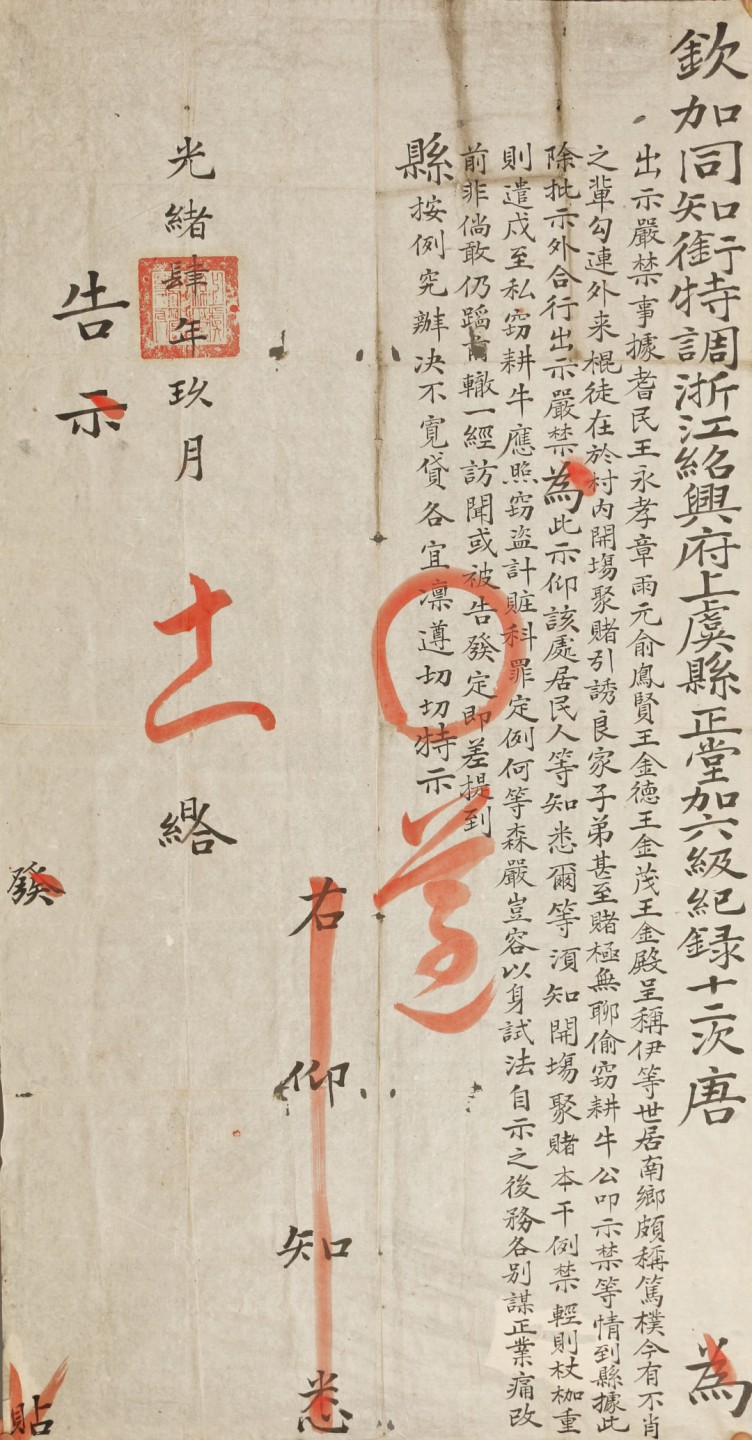 欽加同知銜特調浙江紹興府上虞縣正堂加六級紀錄十二次唐 為
出示嚴禁事據耆民王永孝章雨元俞鳳賢王金德王金茂王金殿呈稱伊等世居南鄉頗稱篤樸今有不肖
之輩勾連外来棍徒在於村內開塲聚賭引誘良家子弟甚至賭極無聊偷窃耕牛公叩示禁等情到縣據此
除批示外合行出示嚴禁為此示仰該處居民人等知悉爾等須知開塲聚賭本干例禁輕則杖枷重
則遣戍至私窃耕牛應照窃盜計賍科罪定例何等森嚴豈容以身試法自示之後務各別謀正業痛改
前非倘敢仍蹈前轍一經訪聞或被告發定即差提到
縣按例究辦决不寬貸各宜凛遵切切特示
遵
右仰知悉
光緒肆年玖月十一 綹
告示
發 貼